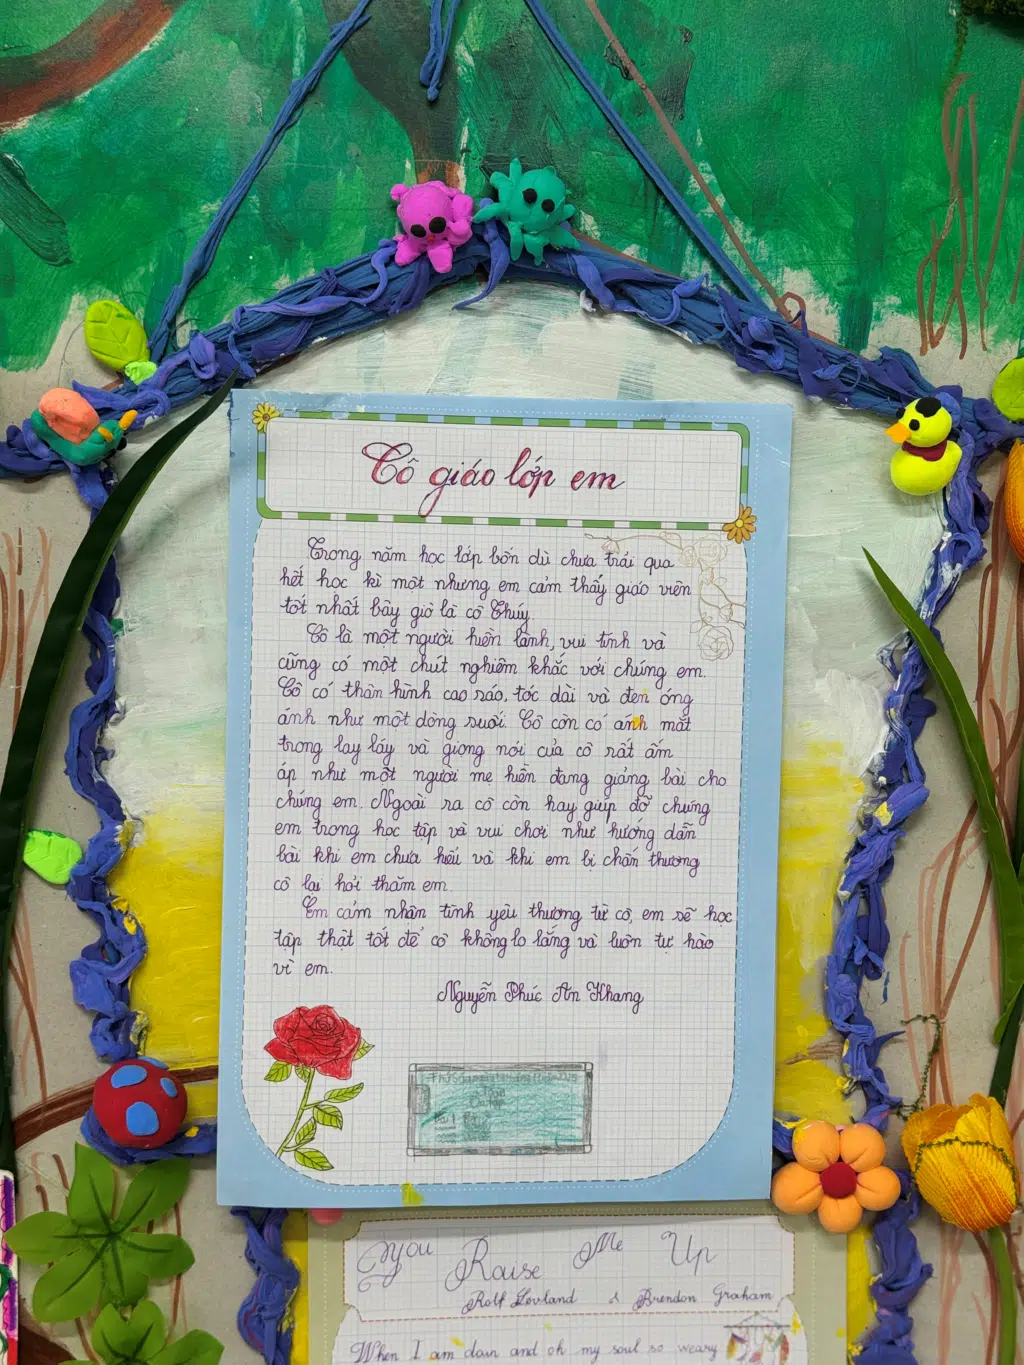 Cô giáo lớp em
Trong năm học lớp bốn dù chưa trải qua
hết học kì một nhưng em cảm thấy giáo viên
tốt nhất bây giờ là cô Thúy.
Cô là một người hiền lành, vui tính và
cũng có một chút nghiêm khắc với chúng em.
Cô có thân hình cao ráo, tóc dài và đen óng
ánh như một dòng suối. Cô còn có ánh mắt
trong lay láy và giọng nói của cô rất ấm
áp như một người mẹ hiền đang giảng bài cho
chúng em. Ngoài ra cô còn hay giúp đỡ chúng
em trong học tập và vui chơi như hướng dẫn
bài khi em chưa hiểu và khi em bị chấn thương
cô lại hỏi thăm em.
Em cảm nhận tình yêu thương từ cô, em sẽ học
tập thật tốt để cô không lo lắng và luôn tự hào
vì em.
Nguyễn Phúc An Khang
You Raise Me Up
Rolf Lovland & Brendon Graham
When I am down and oh my soul so weary